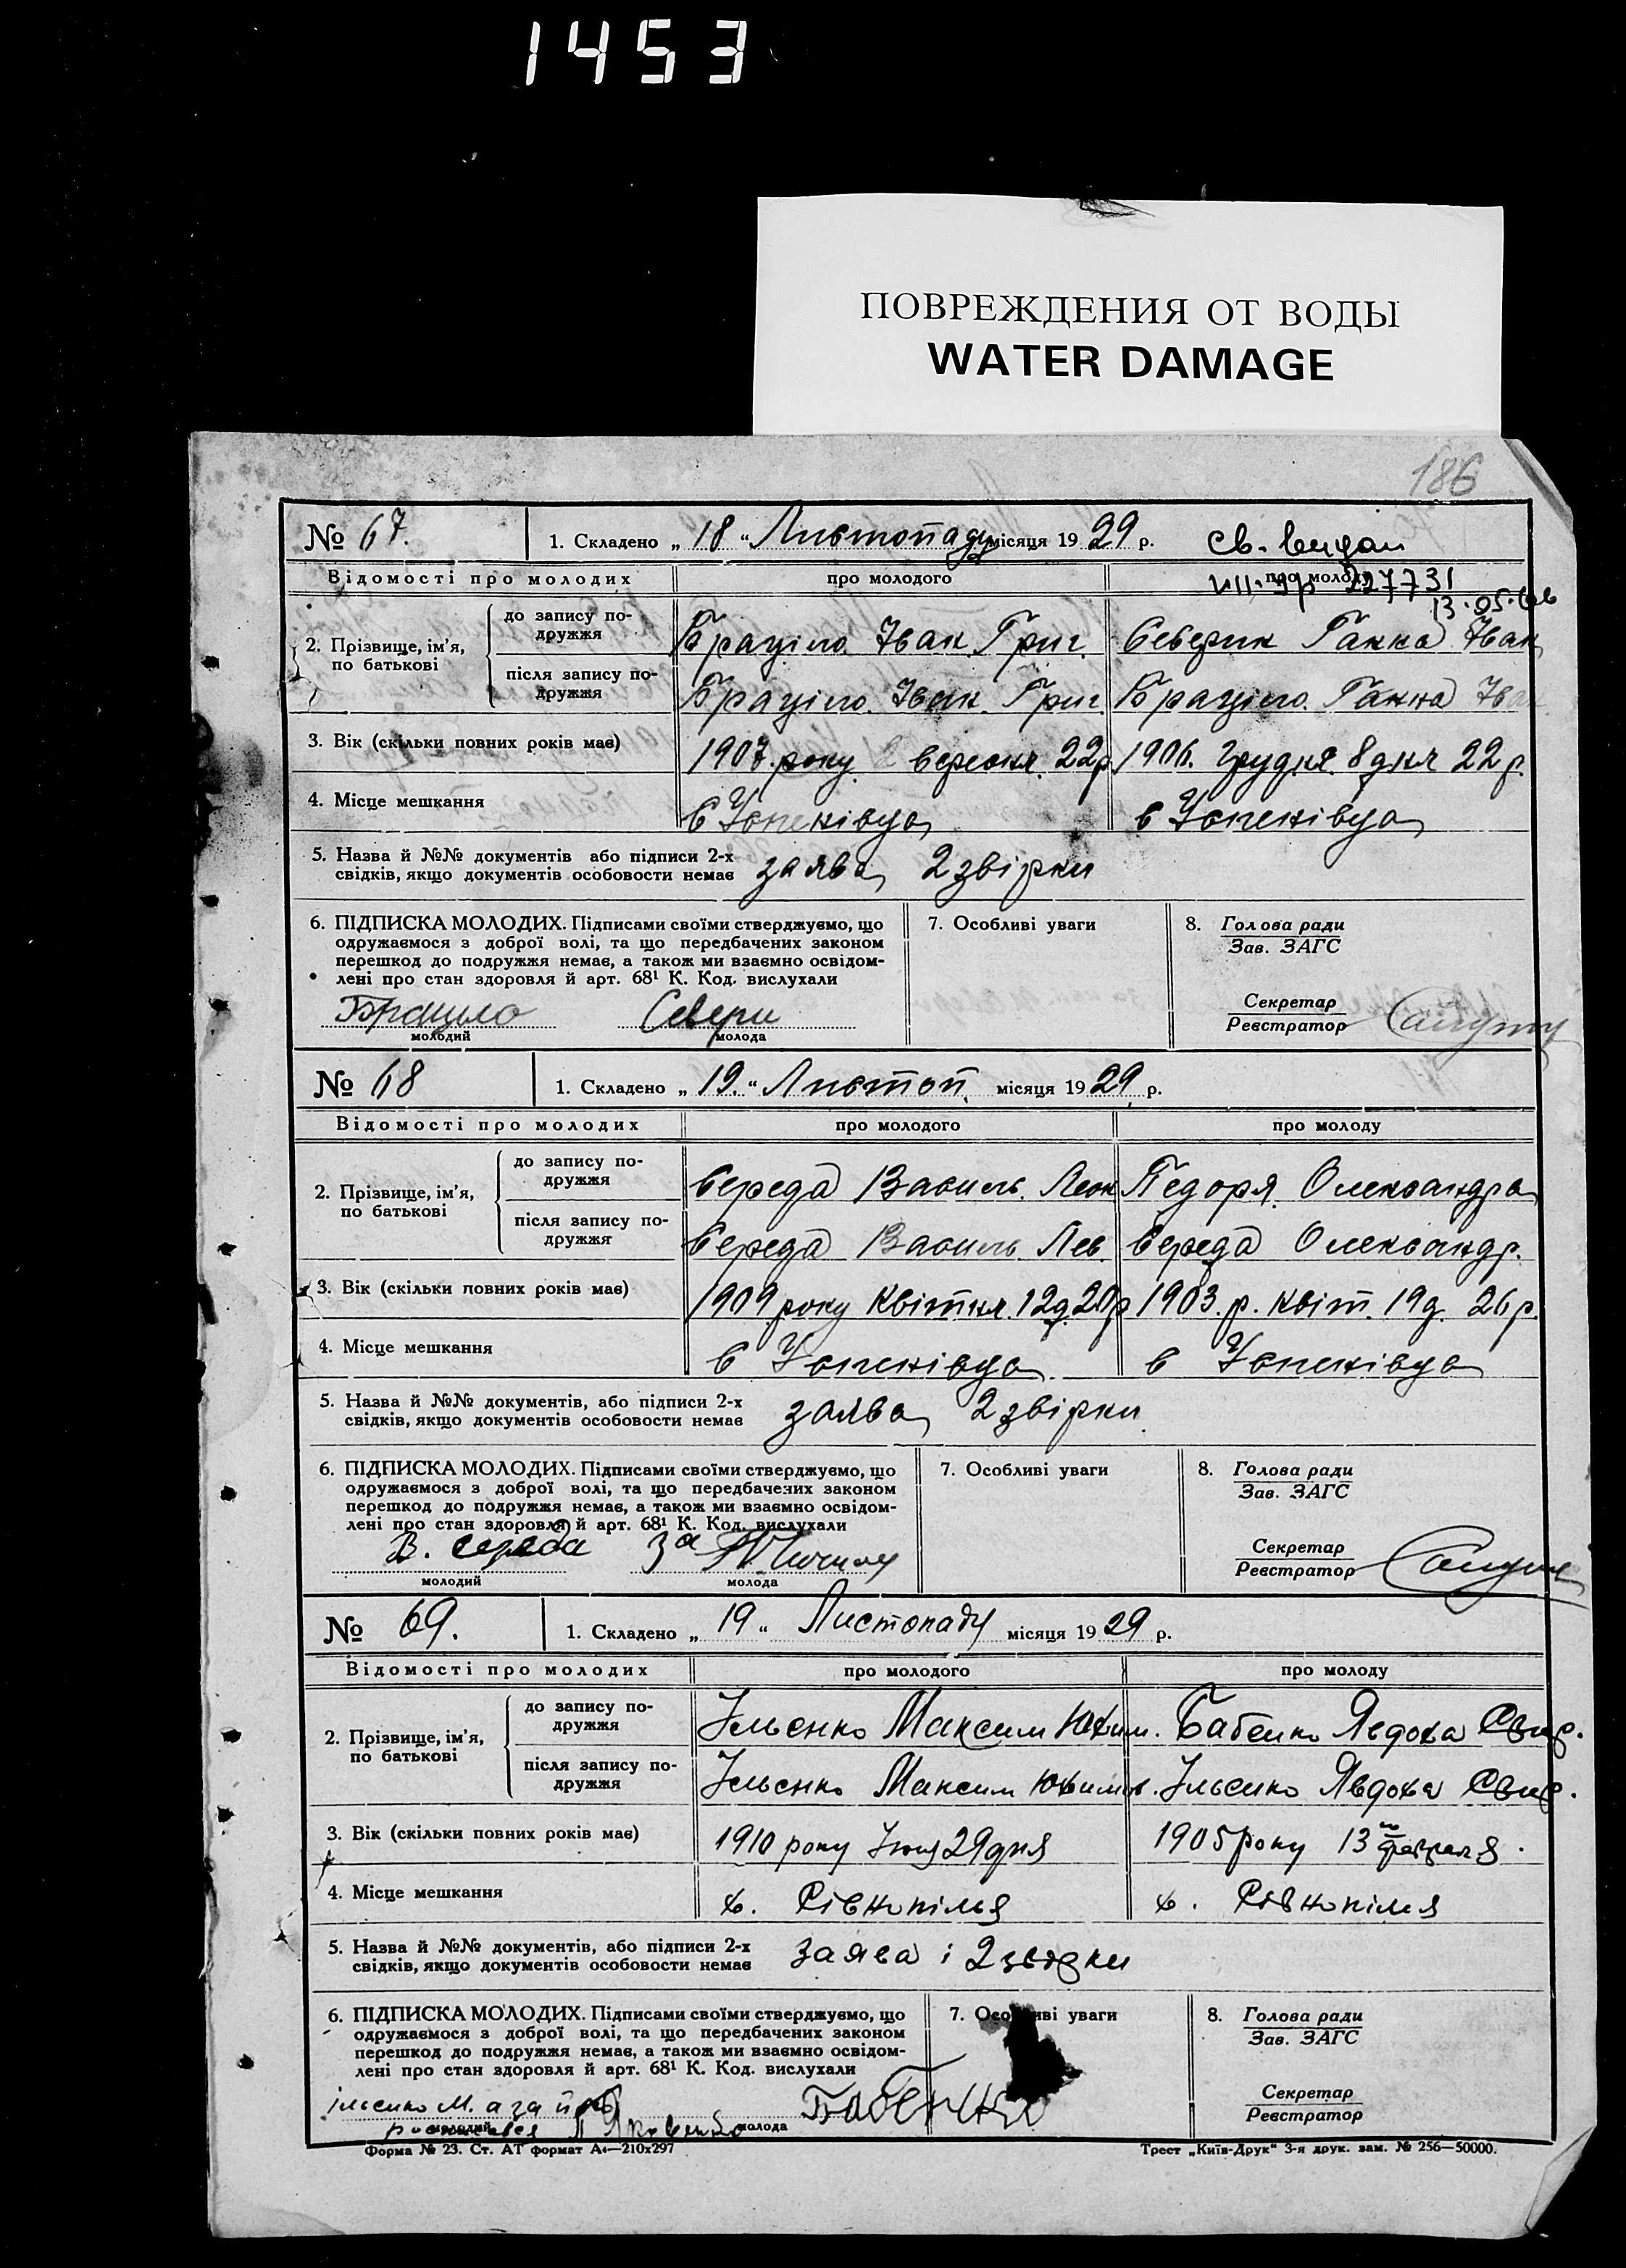 1453
ПОВРЕЖДЕНИЯ ОТ ВОДЫ
WATER DAMAGE
186
№ 67. 1. Складено „ 18 “ Листопаду місяця 19 29 р. св. видан
227731
Відомості про молодих про молодого про молоду
13.05.
2. Прізвище, ім’я, по батькові
до запису подружжя Браціло Іван Григ. Северин Ганна Іван
після запису подружжя Браціло Іван Григ. Браціло Ганна Іван
3. Вік (скільки повних років має) 1907 року вересня 22 р 1906. Грудня 8 дня 22 р.
4. Місце мешкання с Успенівца с Успенівца
5. Назва й №№ документів або підписи 2-х
свідків, якщо документів особовости немає заява 2 звірки
6. ПІДПИСКА МОЛОДИХ. Підписами своїми стверджуємо, що 7. Особливі уваги 8. Голова ради
одружаємося з доброї волі, та що передбачених законом Зав. ЗАГС
перешкод до подружжя немає, а також ми взаємно освідом-
лені про стан здоровля й арт. 68¹ К. Код. вислухали
Секретар
Браціло Севери Реєстратор
молодий молода
№ 68 1. Складено „ 19. “ Листоп. місяця 19 29 р.
Відомості про молодих про молодого про молоду
2. Прізвище, ім’я, по батькові
до запису подружжя Середа Василь Леон Педоря Олександра
після запису подружжя Середа Василь Лев. Середа Олександр.
3. Вік (скільки повних років має) 1909 року Квітня 12 д 20 р 1903. р. квіт. 19 д. 26 р.
4. Місце мешкання с Успенівца с Успенівца
5. Назва й №№ документів, або підписи 2-х
свідків, якщо документів особовости немає заява 2 звірки
6. ПІДПИСКА МОЛОДИХ. Підписами своїми стверджуємо, що 7. Особливі уваги 8. Голова ради
одружаємося з доброї волі, та що передбачених законом Зав. ЗАГС
перешкод до подружжя немає, а також ми взаємно освідом-
лені про стан здоровля й арт. 68¹ К. Код. вислухали
Секретар
В. середа за Реєстратор
молодий молода
№ 69. 1. Складено „ 19 “ Листопаду місяця 19 29 р.
Відомості про молодих про молодого про молоду
2. Прізвище, ім’я, по батькові
до запису подружжя Ільєнко Максим Юхим. Бабенко Явдоха Свир.
після запису подружжя Ільєнко Максим Юхимов. Ільєнко Явдоха Свир.
3. Вік (скільки повних років має) 1910 року Июня 29 дня 1905 року 13го февраля.
4. Місце мешкання х. Рівнопілья х. Рівнопілля
5. Назва й №№ документів, або підписи 2-х
свідків, якщо документів особовости немає заява і 2 звідки
6. ПІДПИСКА МОЛОДИХ. Підписами своїми стверджуємо, що 7. Особливі уваги 8. Голова ради
одружаємося з доброї волі, та що передбачених законом Зав. ЗАГС
перешкод до подружжя немає, а також ми взаємно освідом-
лені про стан здоровля й арт. 68¹ К. Код. вислухали
Секретар
ільєнко М. а за Бабенко Реєстратор
молодий молода
Форма № 23. Ст. АТ формат А₄—210х297 Трест „Київ-Друк“ 3-я друк. зам. № 256—50000.